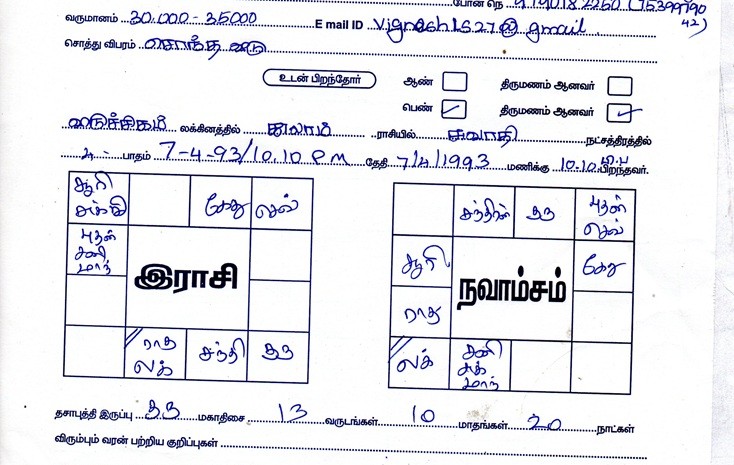 போன் நெ 9790182260 (75399790
42)
வருமானம் 30.000 - 35000 E mail ID vignesh1527@gmail
சொத்து விபரம் சொந்த வீடு
உடன் பிறந்தோர் ஆண் திருமணம் ஆனவர்
பெண் ✓ திருமணம் ஆனவர் ✓
லக்கினத்தில் துலாம் ராசியில் சுவாதி நட்சத்திரத்தில்
பாதம் 7-4-93/10.10 PM தேதி 7/4/1993 மணிக்கு 10.10 பிறந்தவர்.
சூரி கேது செவ்
சுக்கி
புதன்
சனி
மாந்
இராசி
ராகு சந்தி குரு
லக்
சந்திரன் குரு புதன்
செவ்
சூரி கேது
நவாம்சம்
ராகு
லக் சனி
சுக்
மாந்
தசாபுத்தி இருப்பு மகாதிசை 13 வருடங்கள் 10 மாதங்கள் 20 நாட்கள்
விரும்பும் வரன் பற்றிய குறிப்புகள்